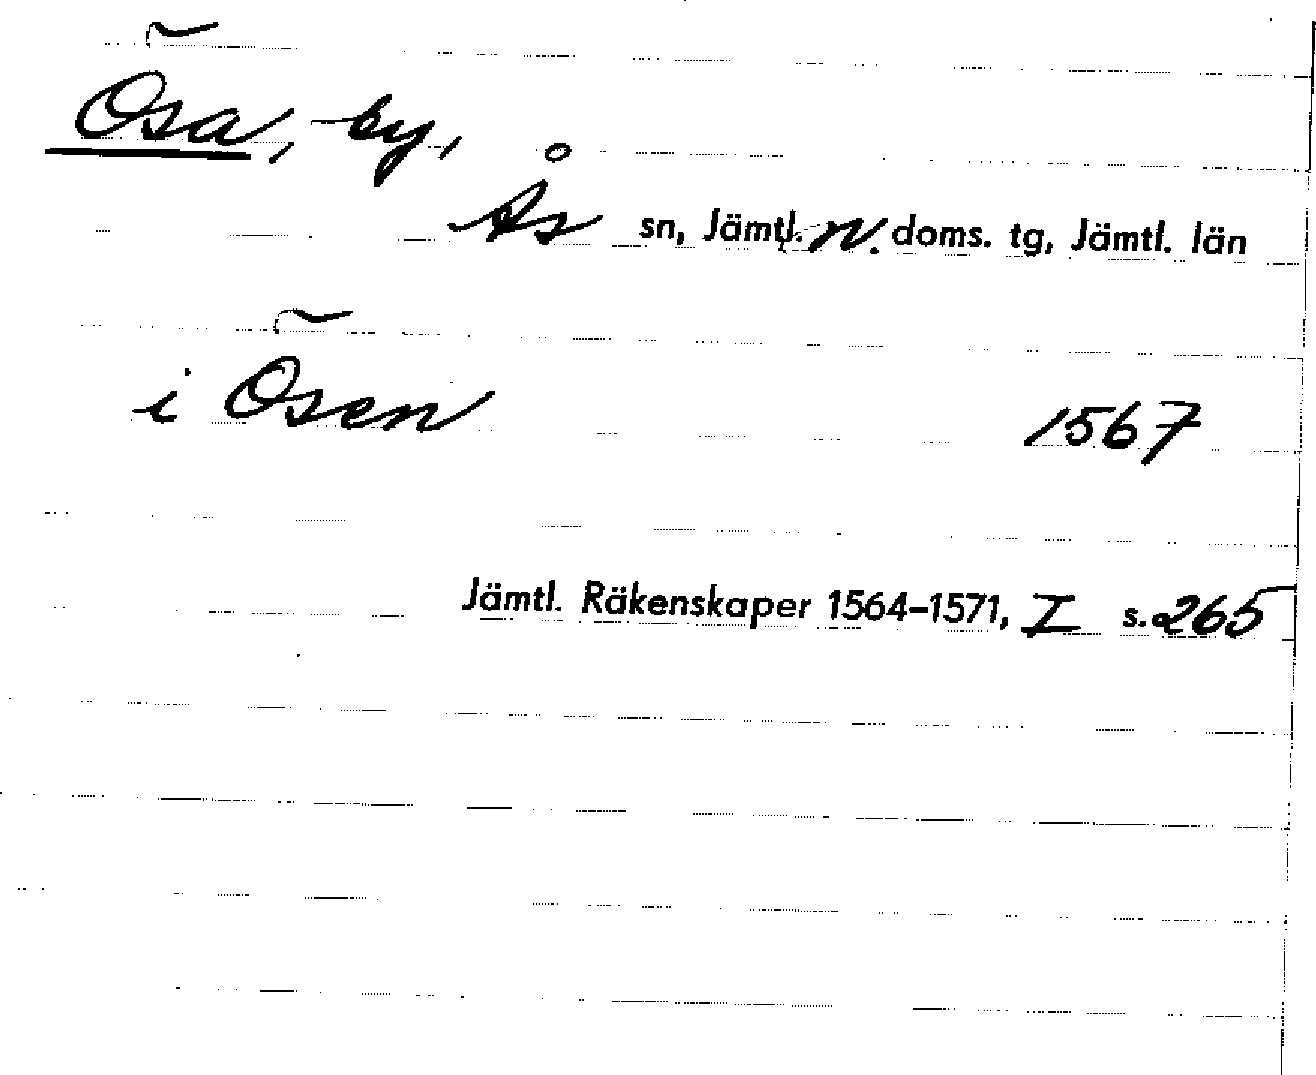 Ösa, by,
Ås sn, Jämtl. N. doms. tg, Jämtl. län
i Ösen 1567
Jämtl. Räkenskaper 1564–1571, I s. 265